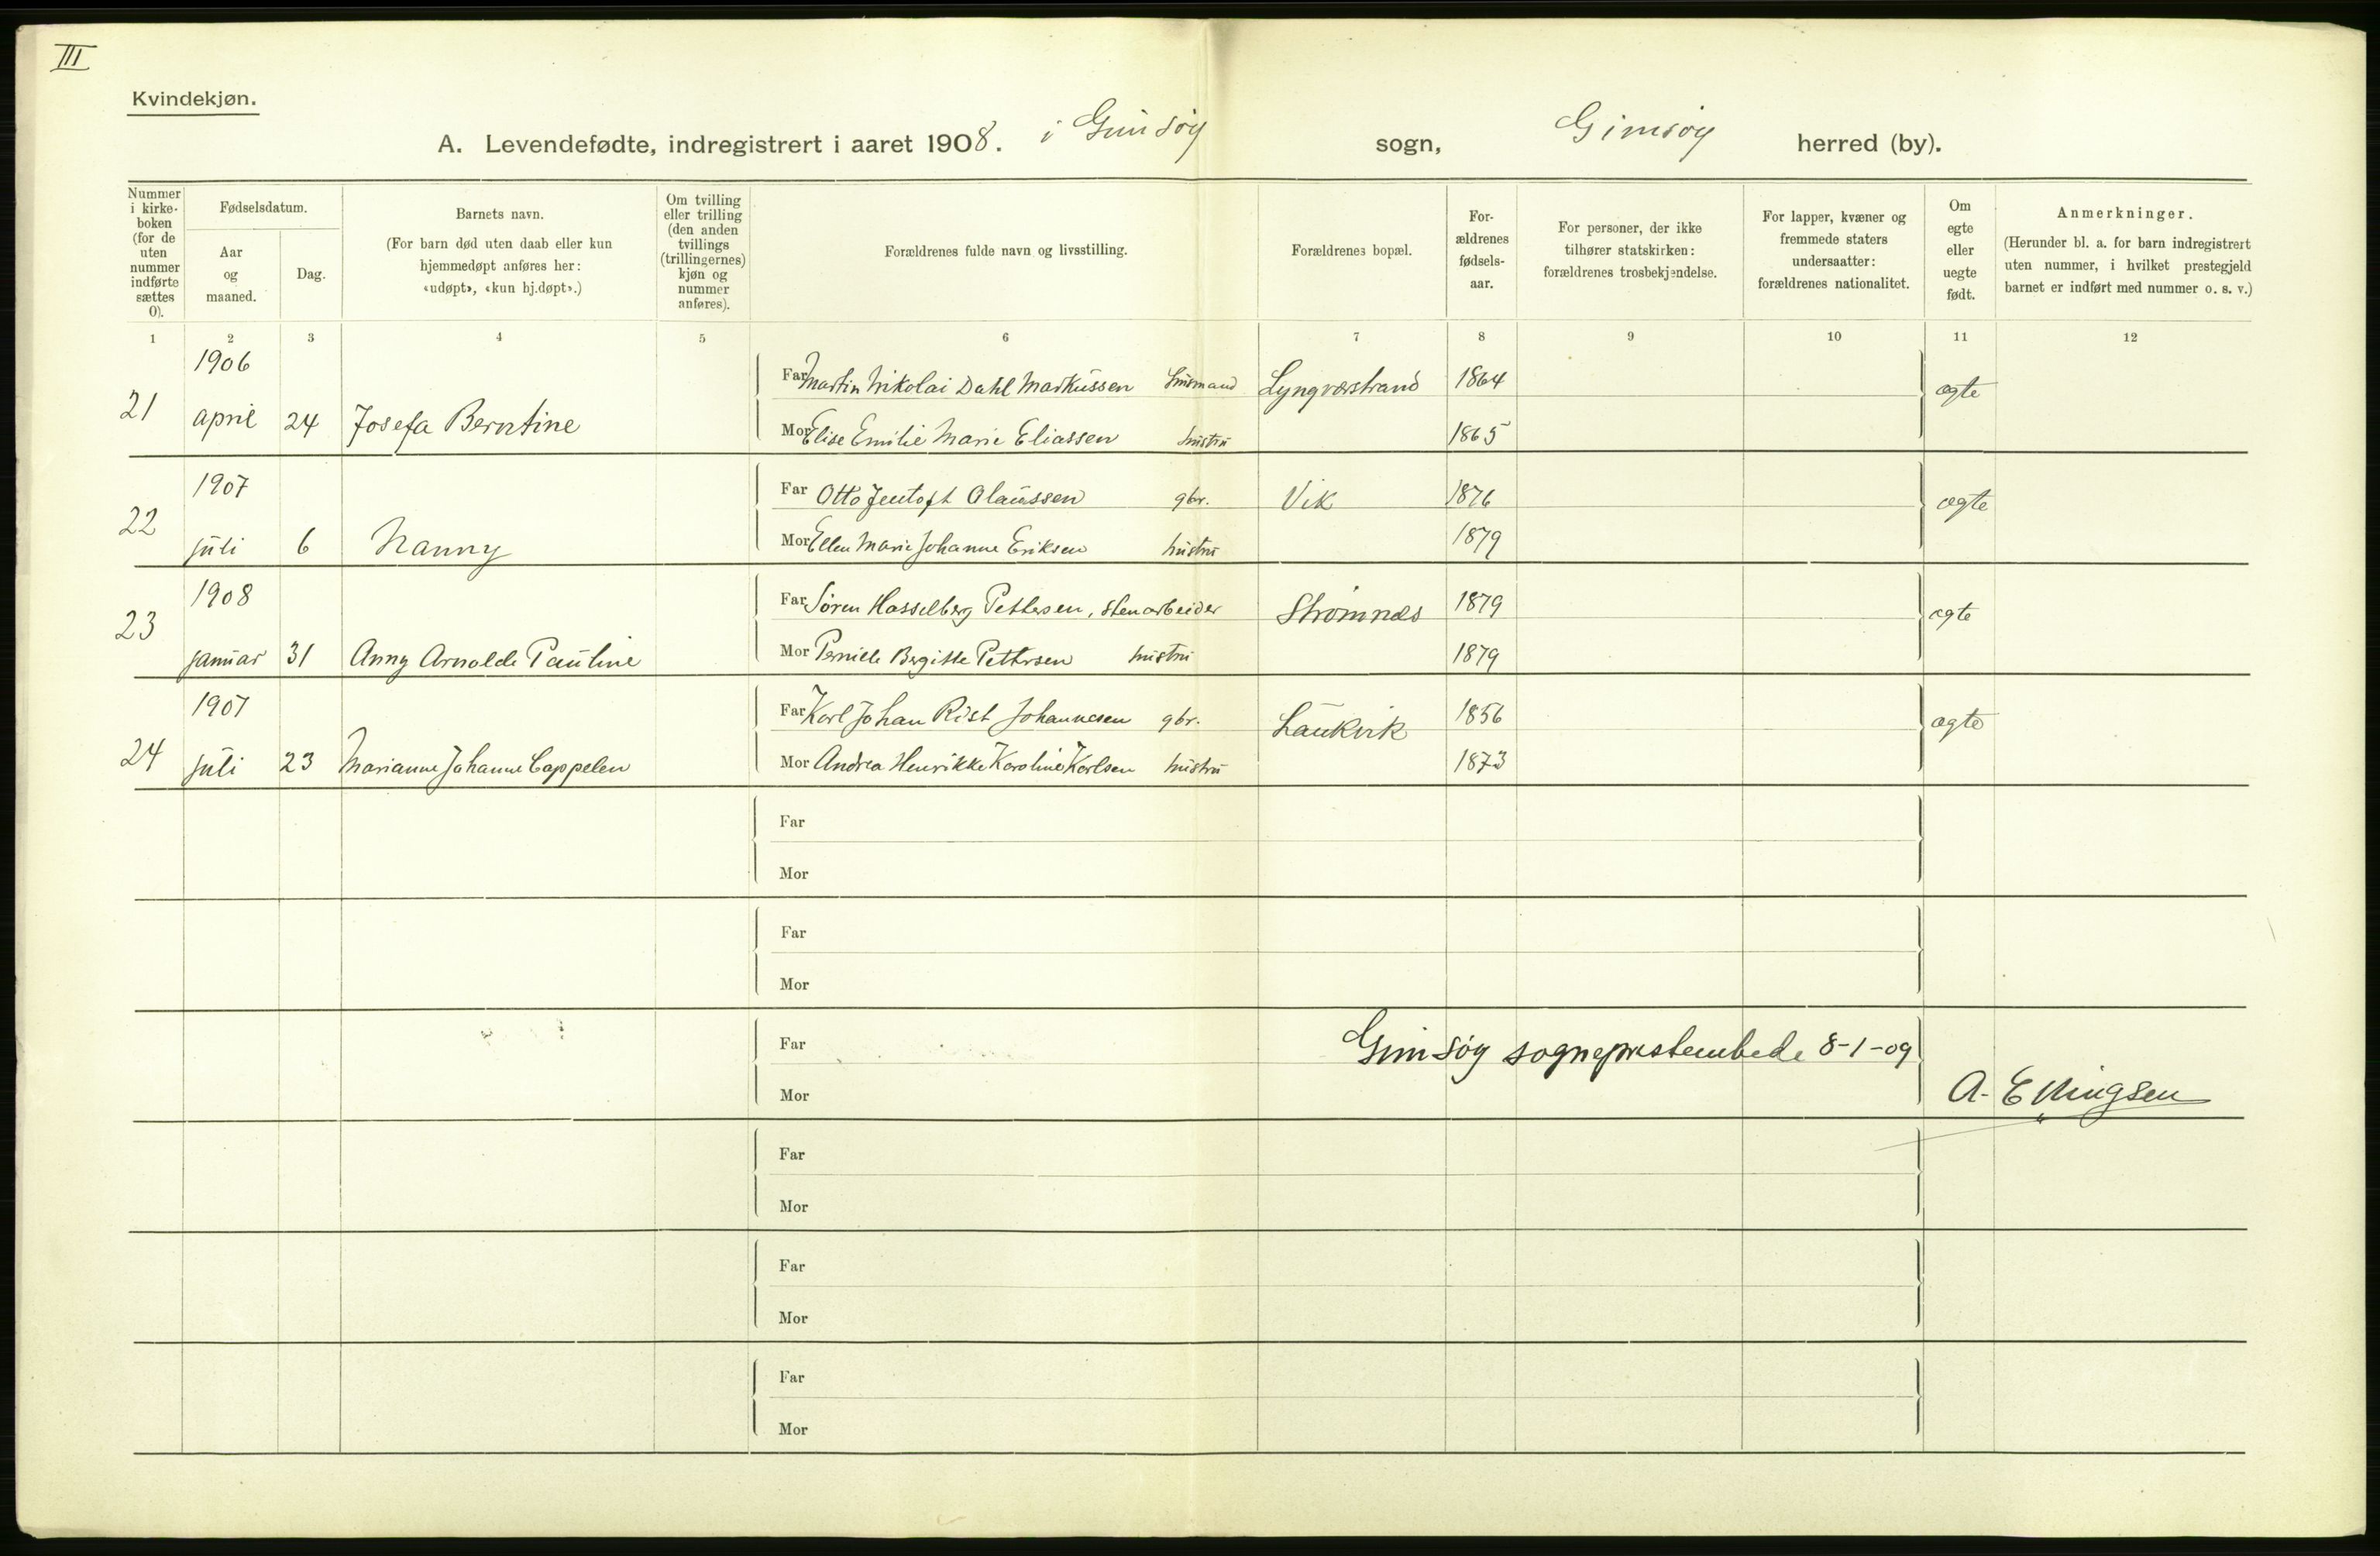 III
Kvindekjøn.
A. Levendefødte, indregistrert i aaret 1908. i Gimsøy sogn, Gimsøy herred (by).
Nummer i kirke-boken (for de uten nummer indførte sættes 0).
Fødselsdatum.
Aar og maaned.
Dag.
Barnets navn.
(For barn død uten daab eller kun hjemmedøpt anføres her: «udøpt», «kun hj.døpt».)
Om tvilling eller trilling (den anden tvillings (trillingernes) kjøn og nummer anføres).
Forældrenes fulde navn og livsstilling.
Forældrenes bopæl.
For-ældrenes fødsels-aar.
For personer, der ikke tilhører statskirken: forældrenes trosbekjendelse.
For lapper, kvæner og fremmede staters undersaatter: forældrenes nationalitet.
Om egte eller uegte født.
Anmerkninger.
(Herunder bl. a. for barn indregistrert uten nummer, i hvilket prestegjeld barnet er indført med nummer o. s. v.)
1 2 3 4 5 6 7 8 9 10 11 12
1906
Far Martin Nikolai Dahl Markussen husmand Lyngværstrand 1864 ægte
21 april 24 Josefa Berntine
Mor Elise Emilie Marie Eliassen hustru 1865
1907
Far Otto Jentoft Olaussen gbr. Vik 1876 ægte
22 juli 6 Nanny
Mor Ellen Marie Johanne Eriksen hustru 1879
1908
Far Søren Hasselberg Pettersen, stenarbeider Strømnæs 1879 ægte
23 januar 31 Anny Arnolde Pauline
Mor Pernille Bergitte Pettersen hustru 1879
1907
Far Karl Johan Rist Johannesen gbr. Laukvik 1856 ægte
24 juli 23 Marianne Johanne Cappelen
Mor Andrea Henrikke Karoline Karlsen hustru 1873
Far
Mor
Far
Mor
Far Gimsøy sogneprestembede 8-1-09
Mor A. Ellingsen
Far
Mor
Far
Mor
Far
Mor